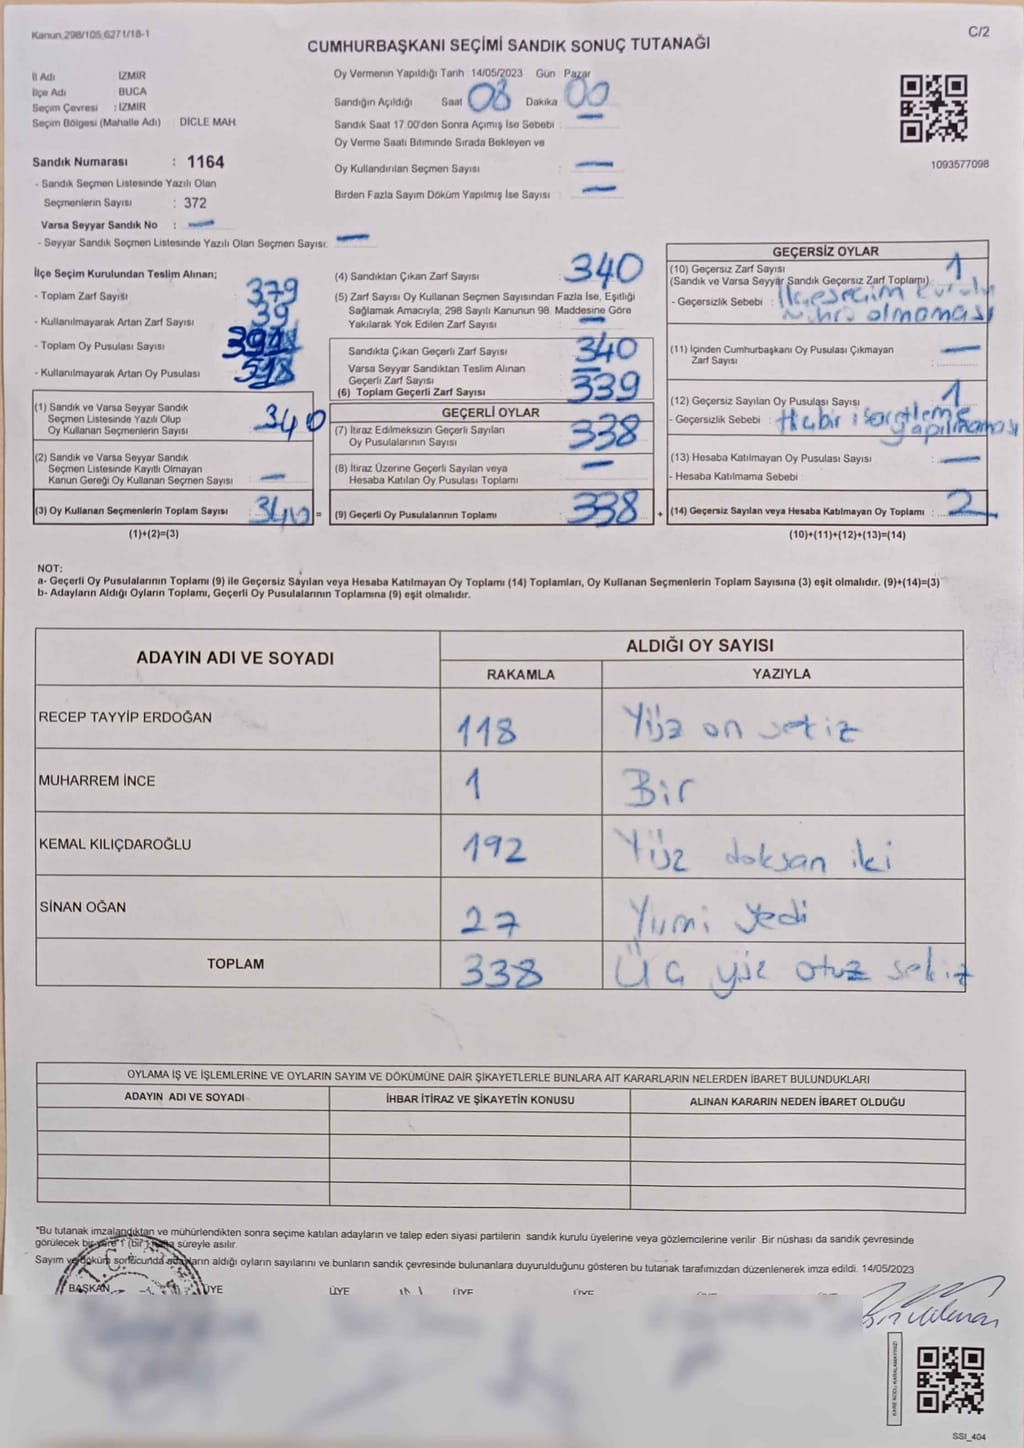 Kanun.298/105,6271/18-1
C/2
CUMHURBAŞKANI SEÇİMİ SANDIK SONUÇ TUTANAĞI
İl Adı İZMİR
İlçe Adı BUCA
Seçim Çevresi : İZMİR
Seçim Bölgesi (Mahalle Adı) : DİCLE MAH
Sandık Numarası : 1164
- Sandık Seçmen Listesinde Yazılı Olan
Seçmenlerin Sayısı : 372
Varsa Seyyar Sandık No : —
- Seyyar Sandık Seçmen Listesinde Yazılı Olan Seçmen Sayısı: —
Oy Vermenin Yapıldığı Tarih 14/05/2023 Gün Pazar
Sandığın Açıldığı Saat 08 Dakika 00
Sandık Saat 17.00'den Sonra Açımış İse Sebebi : —
Oy Verme Saati Bitiminde Sırada Bekleyen ve
Oy Kullandırılan Seçmen Sayısı : —
Birden Fazla Sayım Döküm Yapılmış İse Sayısı : —
1093577098
İlçe Seçim Kurulundan Teslim Alınan;
- Toplam Zarf Sayısı : 379
- Kullanılmayarak Artan Zarf Sayısı : 39
- Toplam Oy Pusulası Sayısı :
- Kullanılmayarak Artan Oy Pusulası :
(1) Sandık ve Varsa Seyyar Sandık
Seçmen Listesinde Yazılı Olup
Oy Kullanan Seçmenlerin Sayısı : 340
(2) Sandık ve Varsa Seyyar Sandık
Seçmen Listesinde Kayıtlı Olmayan
Kanun Gereği Oy Kullanan Seçmen Sayısı : —
(3) Oy Kullanan Seçmenlerin Toplam Sayısı : 340 =
(1)+(2)=(3)
(4) Sandıktan Çıkan Zarf Sayısı : 340
(5) Zarf Sayısı Oy Kullanan Seçmen Sayısından Fazla İse, Eşitliği
Sağlamak Amacıyla, 298 Sayılı Kanunun 98. Maddesine Göre
Yakılarak Yok Edilen Zarf Sayısı : —
Sandıkta Çıkan Geçerli Zarf Sayısı : 340
Varsa Seyyar Sandıktan Teslim Alınan
Geçerli Zarf Sayısı : —
(6) Toplam Geçerli Zarf Sayısı : 339
GEÇERLİ OYLAR
(7) İtiraz Edilmeksizin Geçerli Sayılan
Oy Pusulalarının Sayısı : 338
(8) İtiraz Üzerine Geçerli Sayılan veya
Hesaba Katılan Oy Pusulası Toplamı : —
(9) Geçerli Oy Pusulalarının Toplamı : 338 +
GEÇERSİZ OYLAR
(10) Geçersiz Zarf Sayısı : 1
(Sandık ve Varsa Seyyar Sandık Geçersiz Zarf Toplamı)
- Geçersizlik Sebebi : İlçe seçim kurulu
mührü olmaması
(11) İçinden Cumhurbaşkanı Oy Pusulası Çıkmayan
Zarf Sayısı : —
(12) Geçersiz Sayılan Oy Pusulası Sayısı : 1
- Geçersizlik Sebebi : Hiçbir işaretleme
yapılmaması
(13) Hesaba Katılmayan Oy Pusulası Sayısı : —
- Hesaba Katılmama Sebebi :
(14) Geçersiz Sayılan veya Hesaba Katılmayan Oy Toplamı : 2
(10)+(11)+(12)+(13)=(14)
NOT:
a- Geçerli Oy Pusulalarının Toplamı (9) ile Geçersiz Sayılan veya Hesaba Katılmayan Oy Toplamı (14) Toplamları, Oy Kullanan Seçmenlerin Toplam Sayısına (3) eşit olmalıdır. (9)+(14)=(3)
b- Adayların Aldığı Oyların Toplamı, Geçerli Oy Pusulalarının Toplamına (9) eşit olmalıdır.
ADAYIN ADI VE SOYADI
ALDIĞI OY SAYISI
RAKAMLA YAZIYLA
RECEP TAYYİP ERDOĞAN 118 Yüz on sekiz
MUHARREM İNCE 1 Bir
KEMAL KILIÇDAROĞLU 192 Yüz doksan iki
SİNAN OĞAN 27 Yirmi yedi
TOPLAM 338 Üç yüz otuz sekiz
OYLAMA İŞ VE İŞLEMLERİNE VE OYLARIN SAYIM VE DÖKÜMÜNE DAİR ŞİKAYETLERLE BUNLARA AİT KARARLARIN NELERDEN İBARET BULUNDUKLARI
ADAYIN ADI VE SOYADI İHBAR İTİRAZ VE ŞİKAYETİN KONUSU ALINAN KARARIN NEDEN İBARET OLDUĞU
*Bu tutanak imzalandıktan ve mühürlendikten sonra seçime katılan adayların ve talep eden siyasi partilerin sandık kurulu üyelerine veya gözlemcilerine verilir .Bir nüshası da sandık çevresinde
görülecek bir yere 1 (bir) hafta süreyle asılır.
Sayım ve döküm sonucunda adayların aldığı oyların sayılarını ve bunların sandık çevresinde bulunanlara duyurulduğunu gösteren bu tutanak tarafımızdan düzenlenerek imza edildi. 14/05/2023
T.C.
BAŞKAN ÜYE ÜYE ÜYE ÜYE
SSI_404